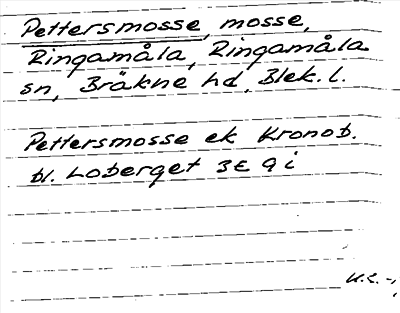 Pettersmosse, mosse,
Ringamåla, Ringamåla
sn, Bräkne hd, Blek. l.
Pettersmosse ek Kronob.
bl. Loberget 3E 9 i